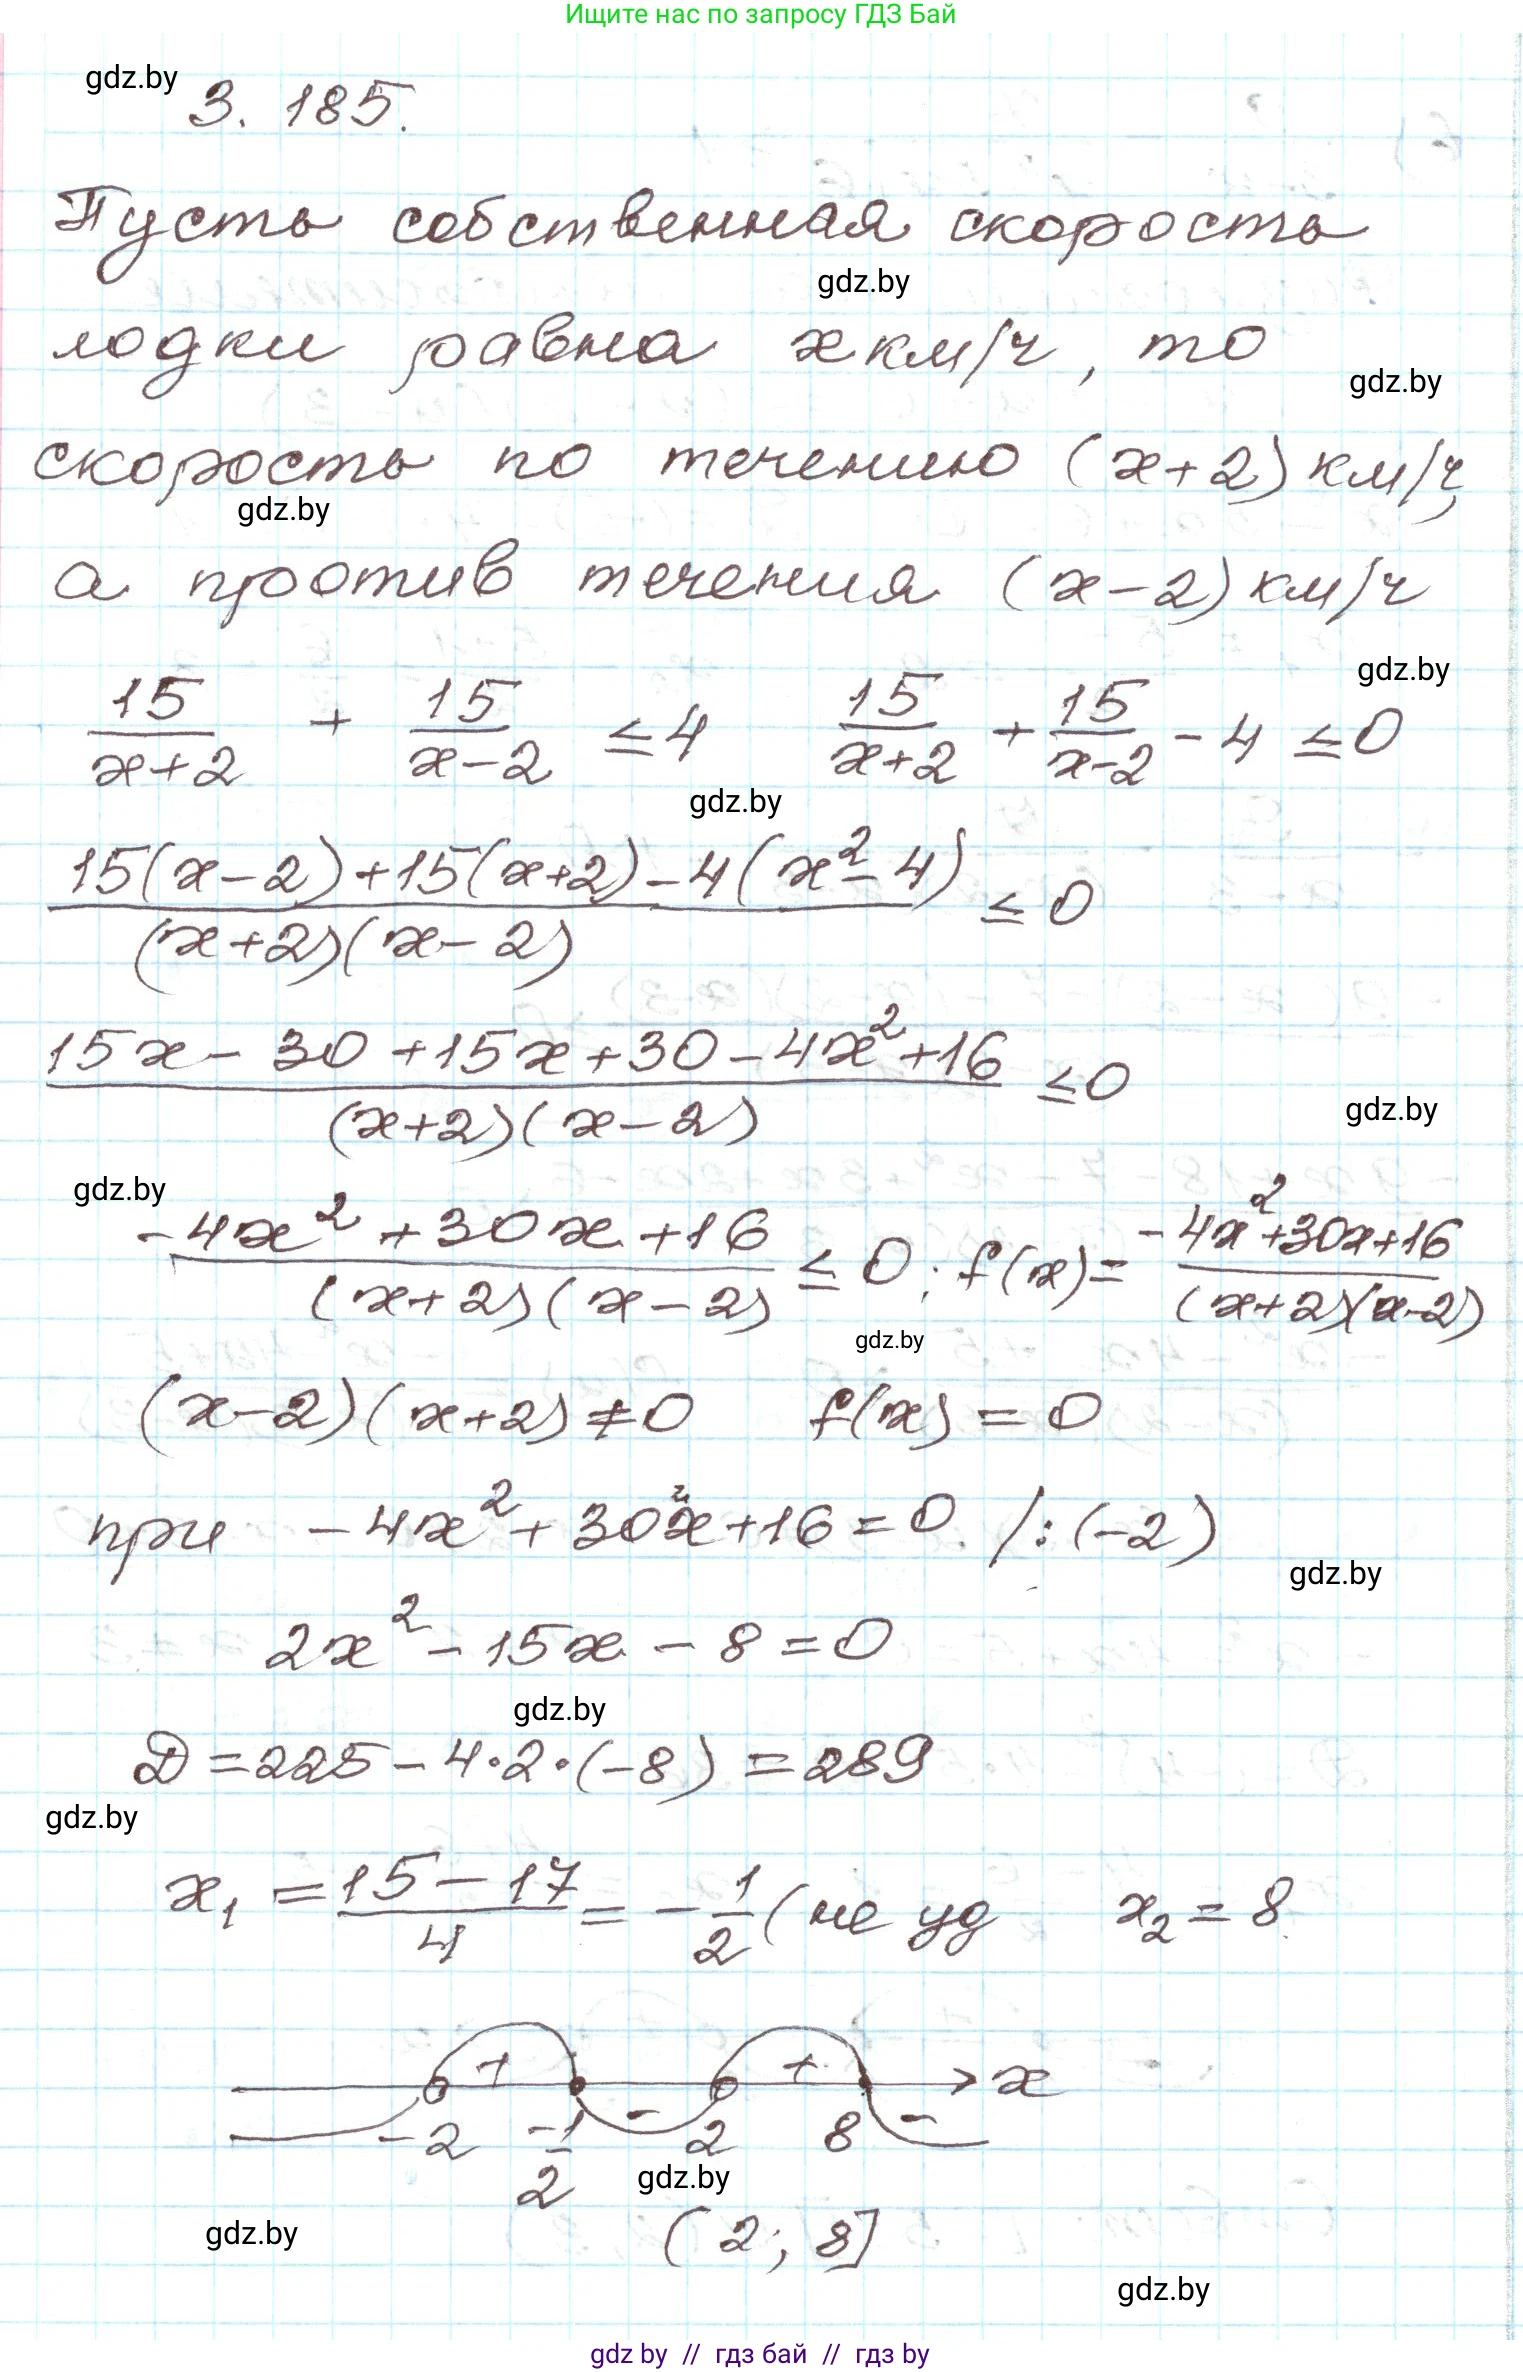 Ищите нас по запросу ГДЗ Бай
gdz.by
3. 185.
Пусть собственная скорость
gdz.by
лодки равна x км/ч, то
gdz.by
скорость по течению (x+2) км/ч,
gdz.by
а против течения (x-2) км/ч
gdz.by
15/(x+2) + 15/(x-2) ≤ 4 15/(x+2) + 15/(x-2) - 4 ≤ 0
gdz.by
(15(x-2)+15(x+2)-4(x²-4))/((x+2)(x-2)) ≤ 0
(15x-30+15x+30-4x²+16)/((x+2)(x-2)) ≤ 0
gdz.by
gdz.by
(-4x²+30x+16)/((x+2)(x-2)) ≤ 0; f(x)= (-4x²+30x+16)/((x+2)(x-2))
gdz.by
(x-2)(x+2)≠0 f(x)=0
при -4x²+30x+16=0 /:(-2)
gdz.by
2x²-15x-8=0
gdz.by
D=225-4·2·(-8)=289
gdz.by
x₁ = (15-17)/4 = -1/2 (не уд x₂ = 8
+ + x
-2 -1/2 - 2 8 -
gdz.by
gdz.by
(2; 8]
gdz.by
gdz by // гдз бай // гдз by